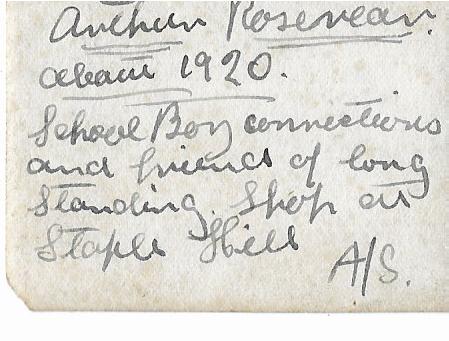 Arthur Rosevear.
about 1920.
School Boy connections
and friends of long
standing. Shop at
Staple Hill
A/S.